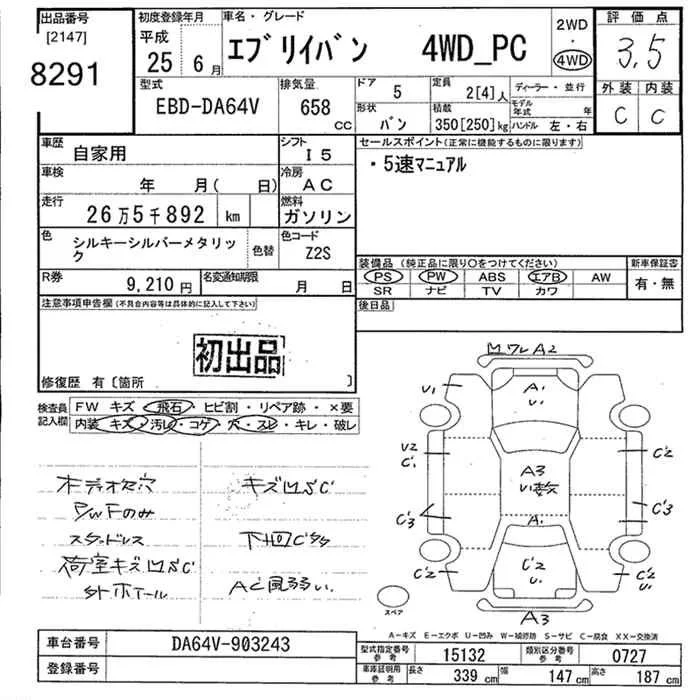 出品番号
[2147]
8291
初度登録年月
平成
25 6月
車名・グレード
エブリイバン 4WD_PC
2WD
・
4WD
評価点
3.5
外装 内装
C C
型式
EBD-DA64V
排気量
658 CC
ドア
5
形状
バン
定員
2[4]人
積載
350[250]kg
ディーラー・並行
モデル年式 年
ハンドル 左・右
車歴
自家用
シフト
I5
車検
年 月( 日)
冷房
AC
走行
26万5千892 km
燃料
ガソリン
色
シルキーシルバーメタリック
色替
色コード
Z2S
R券
9,210円
名変通知期限
月 日
セールスポイント(正常に機能するものに限ります)
・5速マニュアル
装備品 (純正品に限り○をつけてください)
PS PW ABS エアB AW
SR ナビ TV カワ
新車保証書
有・無
後日品
注意事項申告欄(不具合内容等は具体的に記入して下さい)
初出品
修復歴 有〔箇所 〕
検査員記入欄
FW キズ・飛石・ヒビ割・リペア跡・×要
内装 キズ・汚レ・コゲ・穴・スレ・キレ・破レ
P/WFのみ
スタッドレス
荷室キズ凹S C
外ホイール
キズ凹S C
下回C
AC風弱い
ワレA2
U1
A1
U1
U2
C1
C2
A3
U数
C3
C3
A1
C2
C2
U1
C2
U1
A3
スペア
A-キズ E-エクボ U-凹み W-補修跡 S-サビ C-腐食 XX-交換済
車台番号
DA64V-903243
登録番号
型式指定番号
参考
15132
類別区分番号
参考
0727
車庫証明用
参考
長さ
339 cm
幅
147 cm
高さ
187 cm